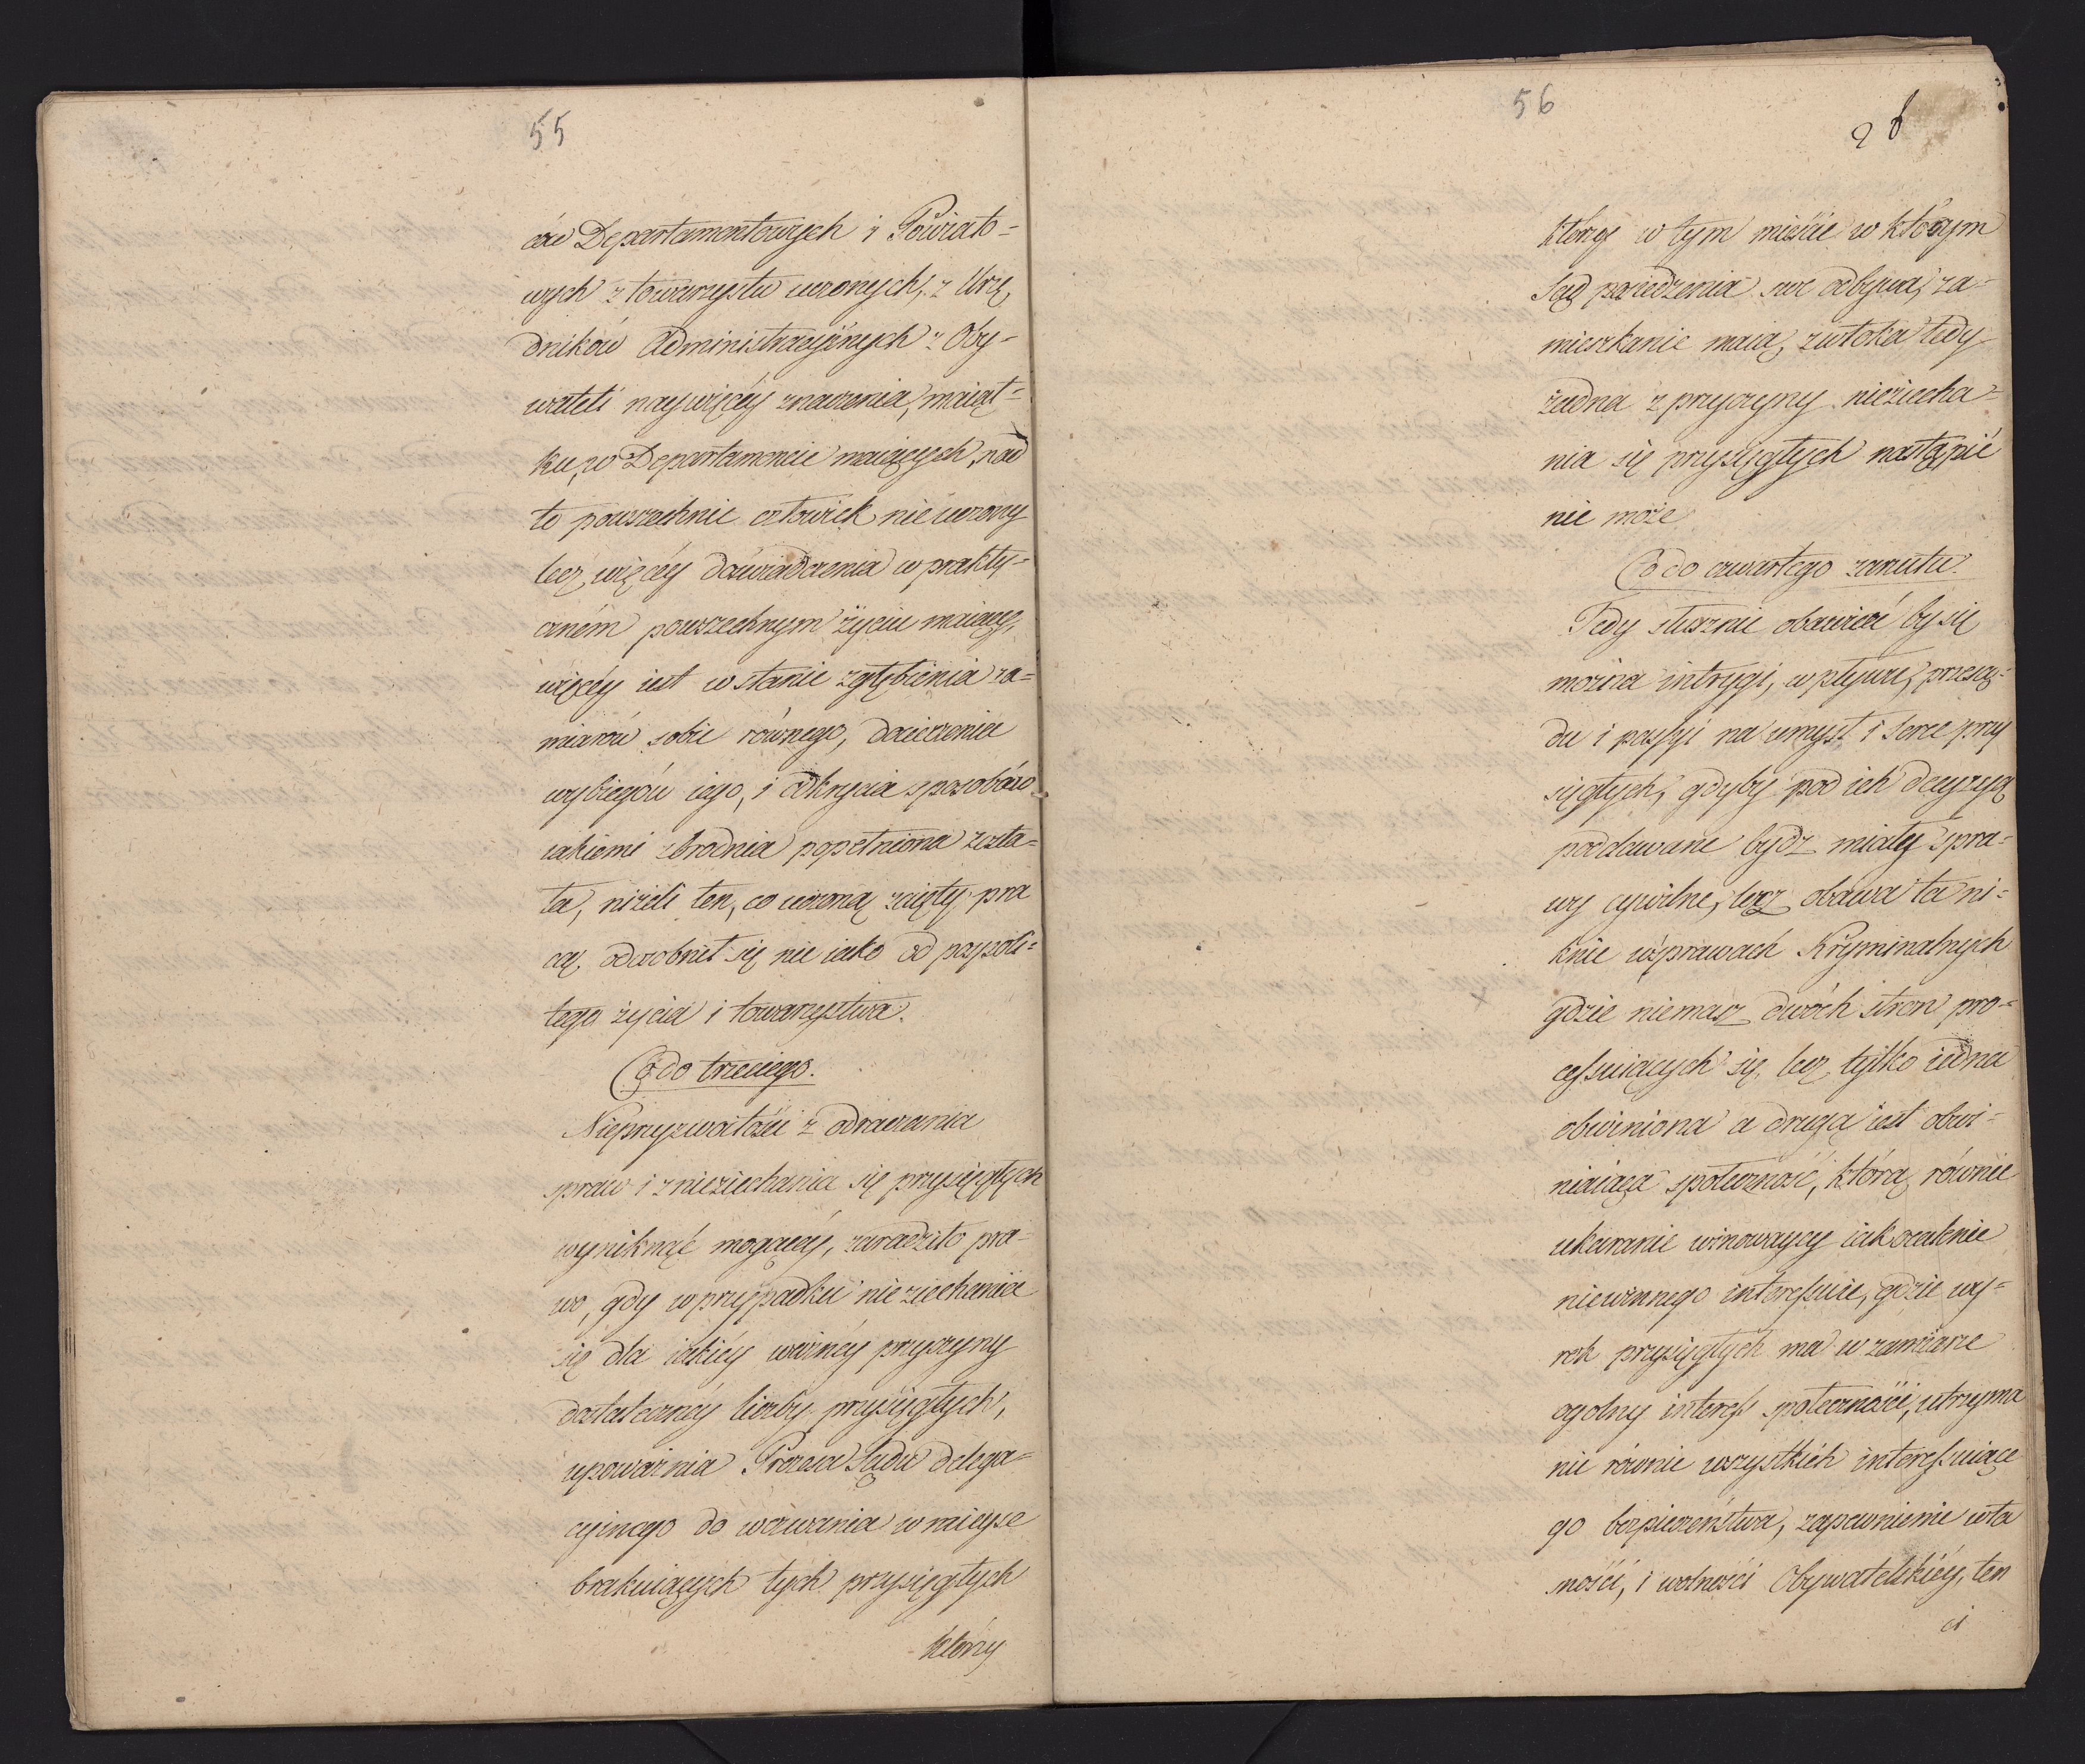 55
ców Departamentowych i Powiato=
wych z towarzystw uczonych, z Urzę
dników Administracyjnych z Oby=
wateli naywięcéy znaczenia, maiąt=
ku, w Departamencie maiących, nad
to powszechnie człowiek nie uczony
lecz więcéy doświadczenia w prakty=
czném powszechnym życiu maiący,
więcéy iest w stanie zgłębienia za=
miarów sobie równego, docieczenia
wybiegów iego, i odkrycia sposobów
iakiemi zbrodnia popełniona zosta=
ła, niżeli ten, co uczoną zaięty pra
cą odosobnił się nie iako od pospoli=
tego życia i towarzystwa.
Co do trzeciego.
Nieprzyzwoitości z odraczania
spraw i z nieziechania się przysięgłych
wyniknąć mogącéy, zaradziło pra=
wo, gdy w przypadku nieziechania
się dla iakiéy ważnéy przyczyny
dostatecznéy liczby przysięgłych,
upoważnia Prezesa Sądu delega=
cyinego do wezwania w mieysce
brakuiących tych przysięgłych
którzy
56
28
którzy w tym mieście w którym
Sąd posiedzenia swe odbywa, za=
mieszkanie maią, zwłoka tedy
żadna z przyczyny nieziecha=
nia się przysięgłych nastąpić
nie może
Co do czwartego zarzutu.
Tedy słusznie obawiać by się
można intrygi, wpływu, przesą=
du i passyi na umysł i serce przy
sięgłych, gdyby pod ich decyzyą
poddawane bydz miały spra=
wy cywilne, lecz obawa ta ni=
knie w sprawach Kryminalnych
gdzie niemasz dwóch stron pro=
cessuiących się, lecz tylko iedna
obwiniona a druga iest obwi=
niaiąca społeczność, którą równie
ukaranie winowaycy iak ocalenie
niewinnego interessuie, gdzie wy=
rok przysięgłych ma w zamiarze
ogolny interess społeczności, utrzyma
nie równie wszystkich interessuiące
go bezpieczeństwa, zapewnienie wła
sności, i wolności Obywatelskiéy, ten